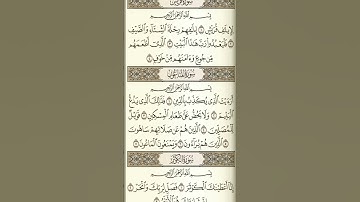 سُورَةُ قُرَيْشٍ
بِسْمِ اللَّهِ الرَّحْمَٰنِ الرَّحِيمِ
لِإِيلَافِ قُرَيْشٍ ١ إِيلَافِهِمْ رِحْلَةَ الشِّتَاءِ وَالصَّيْفِ
٢ فَلْيَعْبُدُوا رَبَّ هَٰذَا الْبَيْتِ ٣ الَّذِي أَطْعَمَهُم
مِّن جُوعٍ وَءَامَنَهُم مِّنْ خَوْفٍ ٤
سُورَةُ الْمَاعُونِ
بِسْمِ اللَّهِ الرَّحْمَٰنِ الرَّحِيمِ
أَرَءَيْتَ الَّذِي يُكَذِّبُ بِالدِّينِ ١ فَذَٰلِكَ الَّذِي يَدُعُّ
الْيَتِيمَ ٢ وَلَا يَحُضُّ عَلَىٰ طَعَامِ الْمِسْكِينِ ٣ فَوَيْلٌ
لِّلْمُصَلِّينَ ٤ الَّذِينَ هُمْ عَن صَلَاتِهِمْ سَاهُونَ
٥ الَّذِينَ هُمْ يُرَاءُونَ ٦ وَيَمْنَعُونَ الْمَاعُونَ ٧
سُورَةُ الْكَوْثَرِ
بِسْمِ اللَّهِ الرَّحْمَٰنِ الرَّحِيمِ
إِنَّا أَعْطَيْنَاكَ الْكَوْثَرَ ١ فَصَلِّ لِرَبِّكَ وَانْحَرْ ٢
إِنَّ شَانِئَكَ هُوَ الْأَبْتَرُ